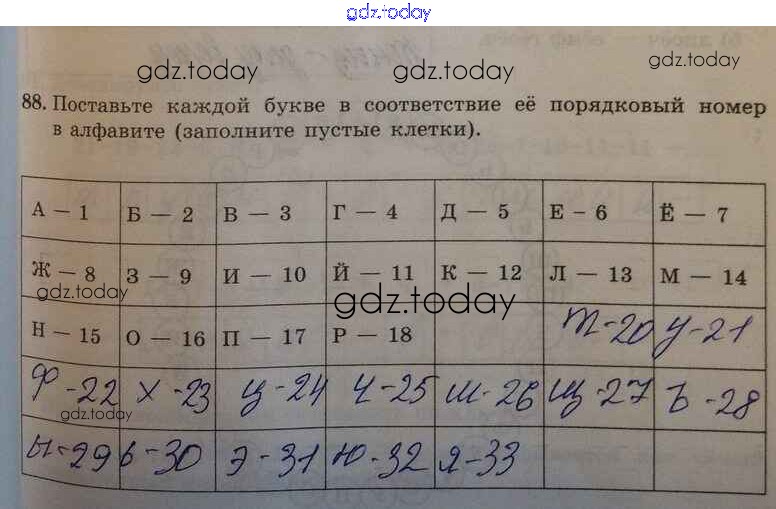 gdz.today
gdz.today
gdz.today
gdz.today
88. Поставьте каждой букве в соответствие её порядковый номер
в алфавите (заполните пустые клетки).
А — 1 Б — 2 В — 3 Г — 4 Д — 5 Е – 6 Ё — 7
Ж — 8 З — 9 И — 10 Й — 11 К — 12 Л — 13 М — 14
gdz.today
gdz.today
Н — 15 О — 16 П — 17 Р — 18 Т-20 У-21
Ф-22 Х-23 Ц-24 Ч-25 Ш-26 Щ-27 Ъ-28
gdz.today
Ы-29 Ь-30 Э-31 Ю-32 Я-33
gdz.today